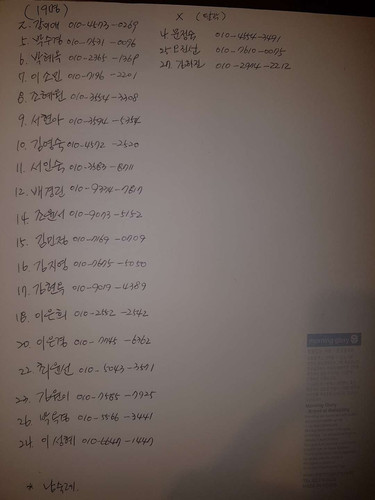 (19명)
2. 김미애 010-4573-0269
5. 박수경 010-7531-0096
6. 박혜옥 010-2365-1369
7. 이소연 010-7196-2201
8. 조혜원 010-3554-3308
9. 서현아 010-3594-5354
10. 김영숙 010-4572-2520
11. 서인숙 010-3583-8711
12. 배경란 010-9334-7817
14. 조윤서 010-9073-5152
15. 김민정 010-7169-0709
16. 김지영 010-7675-5050
17. 김현옥 010-9019-4389
18. 이은희 010-2542-2542
20. 이은경 010-7745-6362
22. 최윤선 010-5043-3571
23. 김원이 010-7585-7725
26. 박윤경 010-3566-3441
24. 이선혜 010-6647-1447
* 남수례
x
4. 문정숙 010-4554-3491
25. 010-7610-0075
27. 010-2984-2212